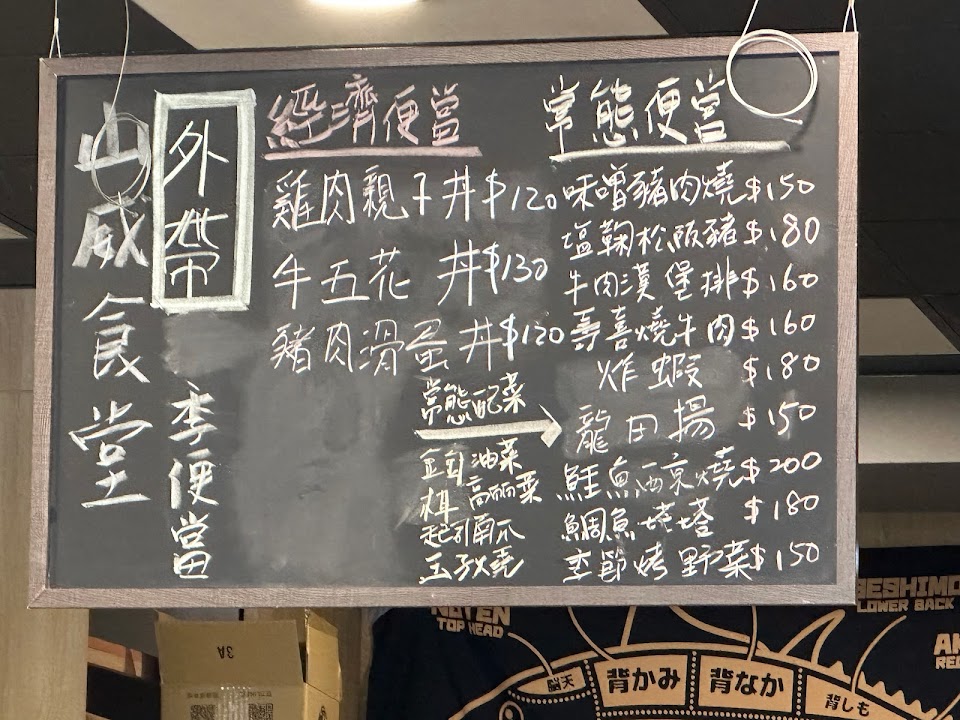 山威食堂
外帶
季便當
經濟便當
雞肉親子丼 $120
牛五花 丼 $130
豬肉滑蛋丼 $120
常態便當
味噌豬肉燒 $150
塩麴松阪豬 $180
牛肉漢堡排 $160
壽喜燒牛肉 $160
炸蝦 $180
龍田揚 $150
鮭魚西京燒 $200
鯛魚 $180
季節烤野菜 $150
常態配菜
油菜
高丽菜
南瓜
玉子燒
3A
TOP HEAD
LOWER BACK
脳天
背かみ
背なか
背しも